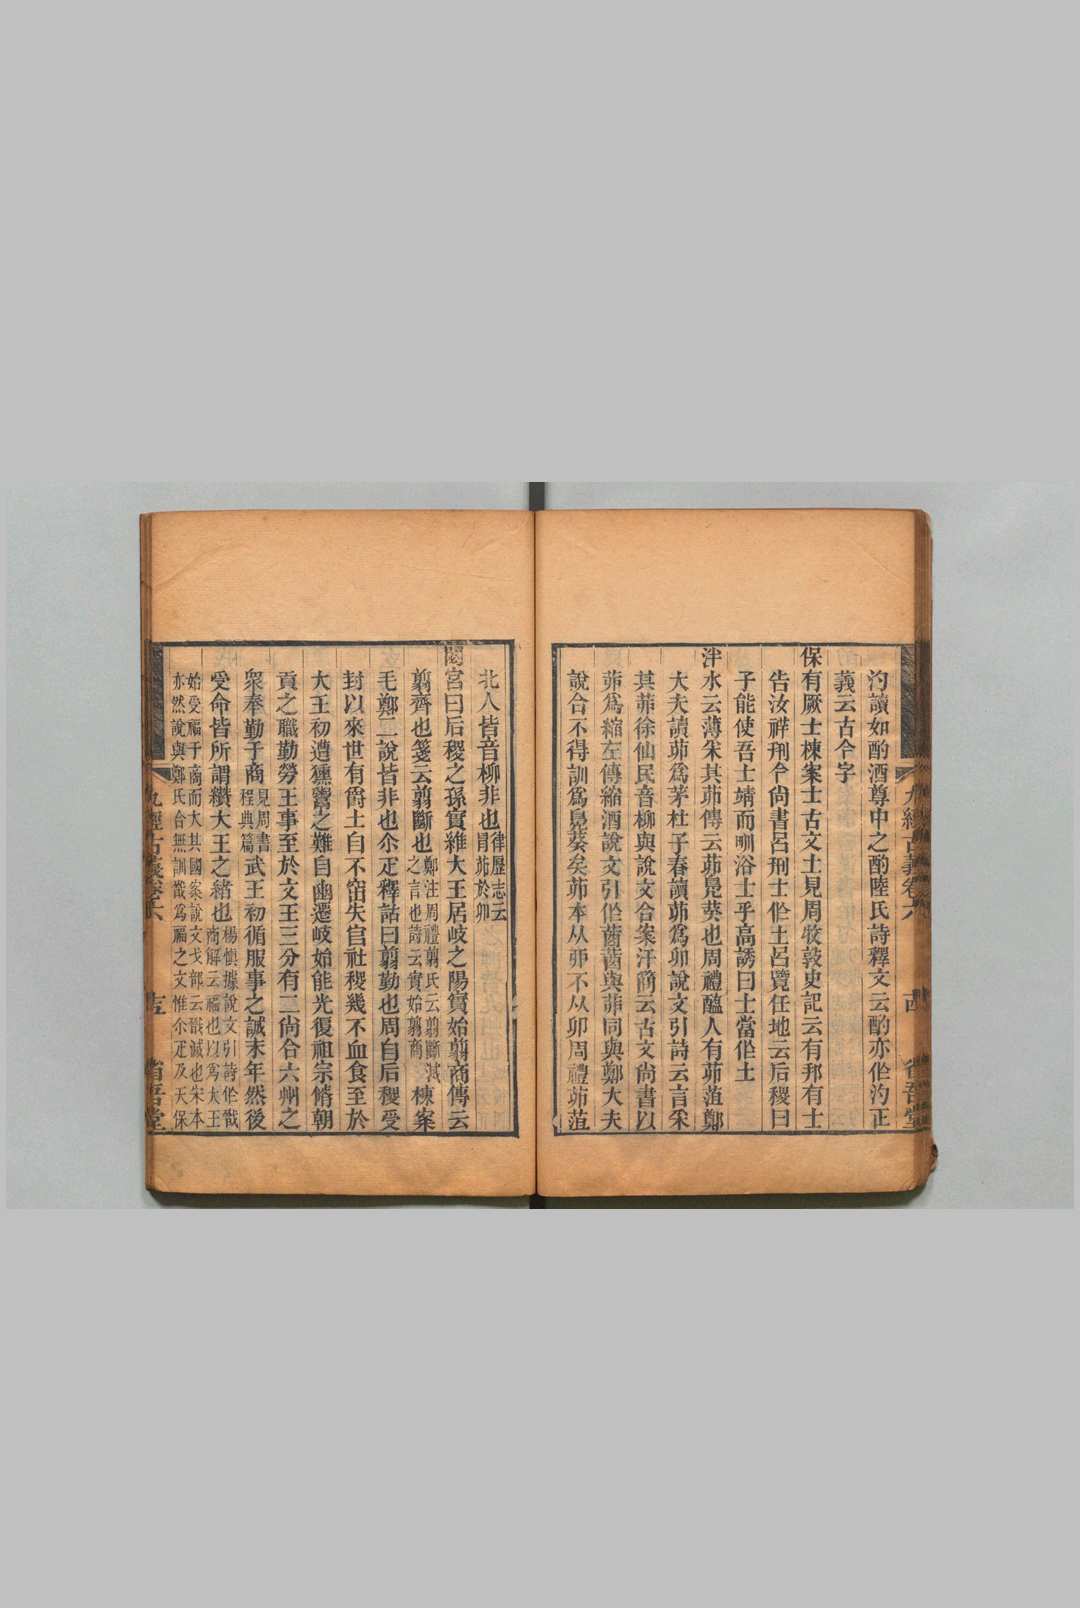 汋讀如酌酒尊中之酌陸氏詩釋文云酌亦作汋正
義云古今字
保有厥士棟案士古文土見周牧敦史記云有邦有士
告汝祥刑今尚書呂刑士作土呂覽任地云后稷曰
子能使吾士靖而甽浴士乎高誘曰士當作土
泮水云薄采其茆傳云茆鳧葵也周禮醢人有茆菹鄭
大夫讀茆爲茅杜子春讀茆爲卯說文引詩云言采
其茆徐仙民音柳與說文合案汗簡云古文尚書以
茆爲縮左傳縮酒說文引作莤莤與茆同與鄭大夫
說合不得訓爲鳧葵矣茆本从丣不从卯周禮茆菹
九經古義卷六
古
省吾堂
北人皆音柳非也律歷志云
冒茆於卯
閟宮曰后稷之孫實維大王居岐之陽實始翦商傳云
翦齊也箋云翦斷也鄭注周禮翦氏云翦斷滅
之言也詩云實始翦商棟案
毛鄭二說皆非也尒疋釋詁曰翦勤也周自后稷受
封以來世有爵土自不窋失官社稷幾不血食至於
大王初遭獯鬻之難自豳遷岐始能光復祖宗脩朝
貢之職勤勞王事至於文王三分有二尚合六州之
衆奉勤于商見周書
程典篇武王初循服事之誠末年然後
受命皆所謂纘大王之緒也楊慎據說文引詩作戩
商解云福也以爲大王
始受福于商而大其國案說文戈部云戩滅也朱本
亦然說與鄭氏合無訓戩爲福之文惟尒疋及天保
九經古義卷六
省吾堂